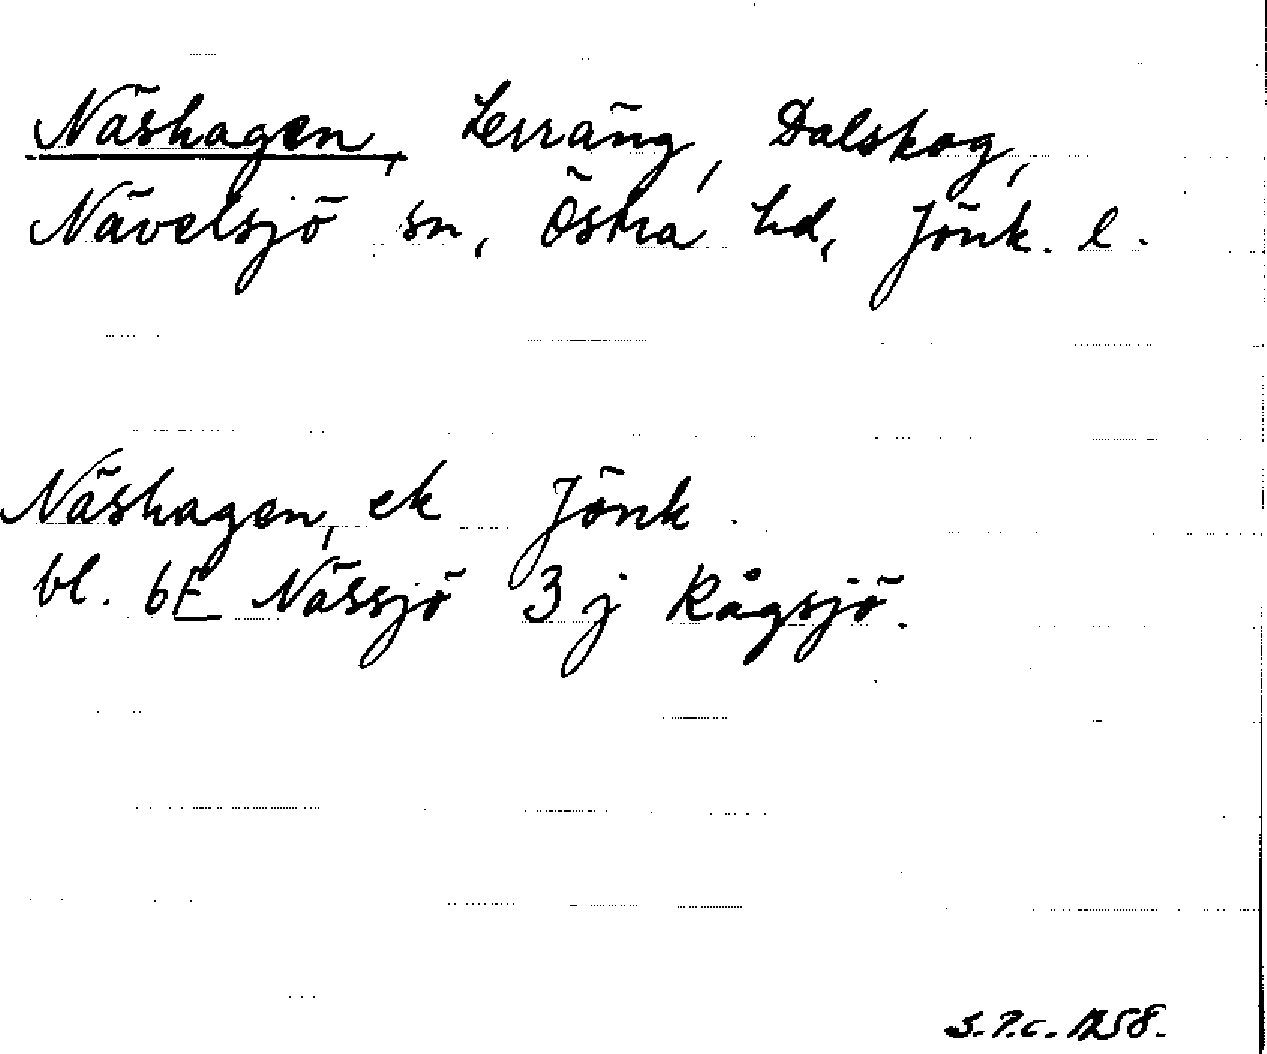 Näshagen, Lerräng, Dalskog,
Nävelsjö sn, Östra hd, Jönk. l.
Näshagen, ek Jönk.
bl. 6E Nässjö 3 j Rågsjö.
1258.